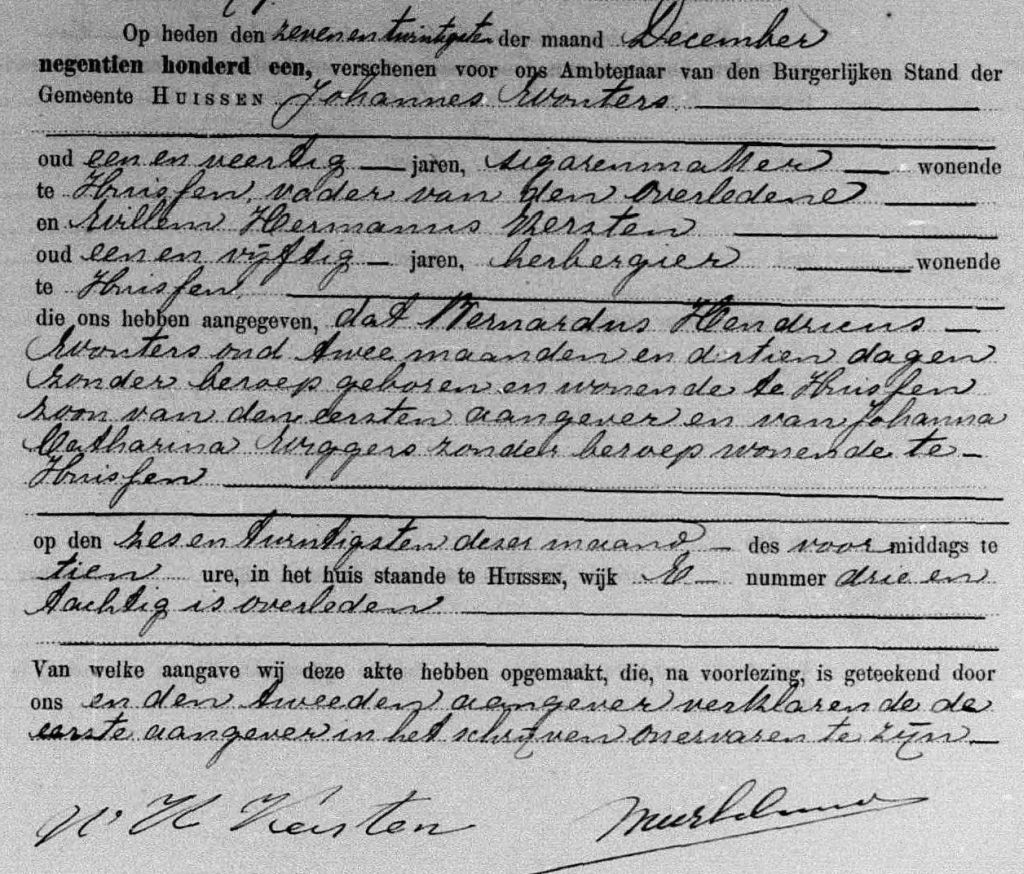 Op heden den zevenentwintigsten der maand December
negentien honderd een, verschenen voor ons Ambtenaar van den Burgerlijken Stand der
Gemeente HUISSEN Johannes Wouters
oud een en veertig jaren, sigarenmaker wonende
te Huissen, vader van den overledene
en Willem Hermanus Kersten
oud een en vijftig jaren, herbergier wonende
te Huissen,
die ons hebben aangegeven, dat Bernardus Hendricus
Wouters oud twee maanden en dertien dagen
zonder beroep geboren en wonende te Huissen
zoon van den eersten aangever en van Johanna
Catharina zonder beroep wonende te
Huissen
op den zes en twintigsten dezer maand des voormiddags te
tien ure, in het huis staande te HUISSEN, wijk nummer drie en
tachtig is overleden
Van welke aangave wij deze akte hebben opgemaakt, die, na voorlezing, is geteekend door
ons en den tweeden aangever verklarende de
eerste aangever in het schrijven onervaren te zijn
W H Kersten